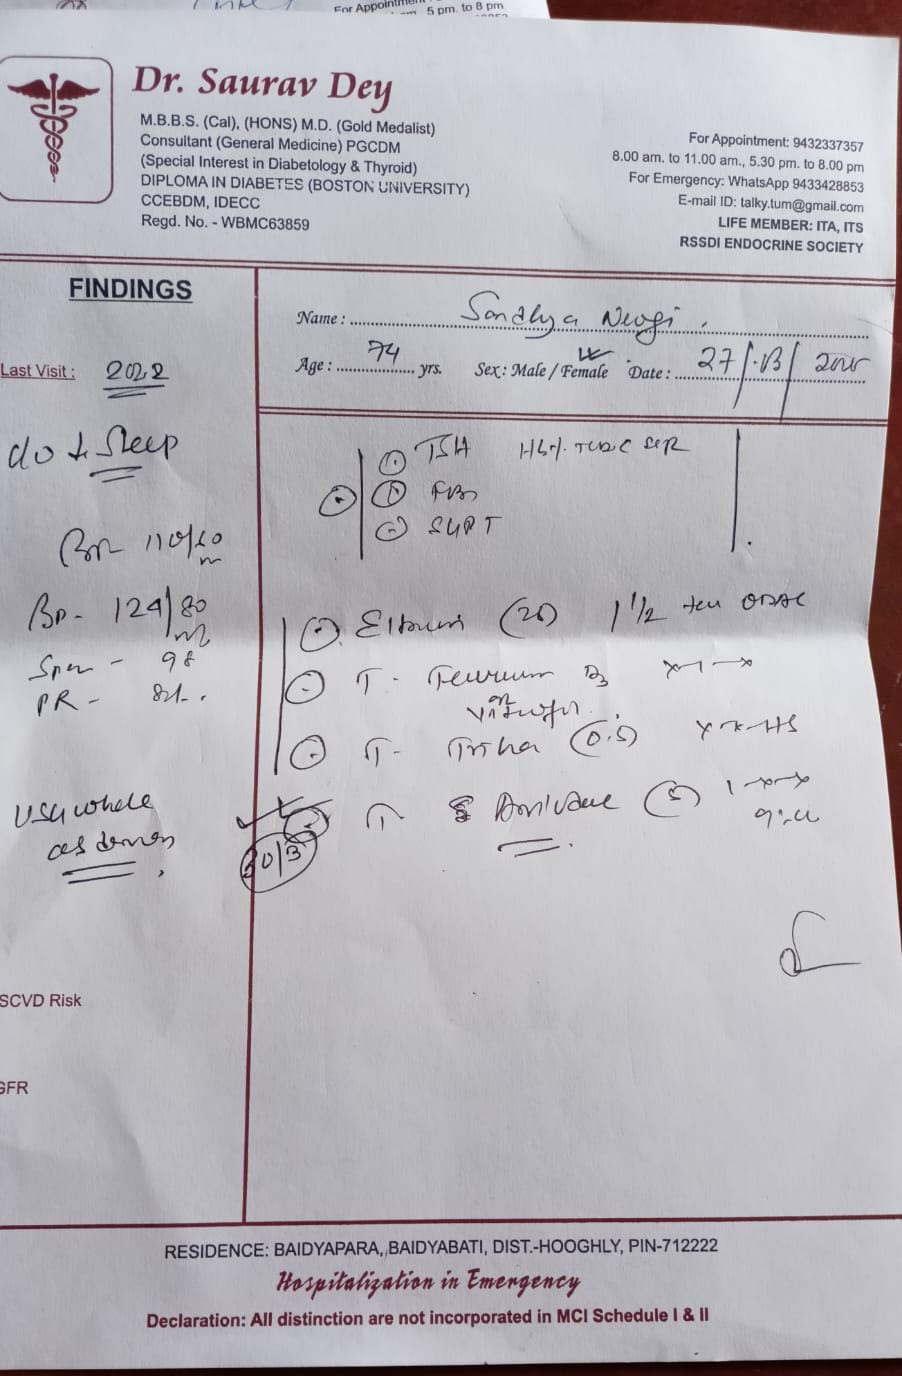 For Appointment
5 pm. to 8 pm
Dr. Saurav Dey
M.B.B.S. (Cal), (HONS) M.D. (Gold Medalist)
Consultant (General Medicine) PGCDM
(Special Interest in Diabetology & Thyroid)
DIPLOMA IN DIABETES (BOSTON UNIVERSITY)
CCEBDM, IDECC
Regd. No. - WBMC63859
For Appointment: 9432337357
8.00 am. to 11.00 am., 5.30 pm. to 8.00 pm
For Emergency: WhatsApp 9433428853
E-mail ID: talky.tum@gmail.com
LIFE MEMBER: ITA, ITS
RSSDI ENDOCRINE SOCIETY
FINDINGS
Last Visit : 2022
Sleep
110/60
BP - 124/80
98
PR -
USG whole
SCVD Risk
GFR
Name : Sandhya Neogi
Age : 74 yrs. Sex: Male / Female Date : 27/
TSH Hb%
SGPT
(20) 1 1/2
T -
T - (0.5) x-x-HS
T (5) 1-x-x
30/3
RESIDENCE: BAIDYAPARA, BAIDYABATI, DIST.-HOOGHLY, PIN-712222
Hospitalization in Emergency
Declaration: All distinction are not incorporated in MCI Schedule I & II